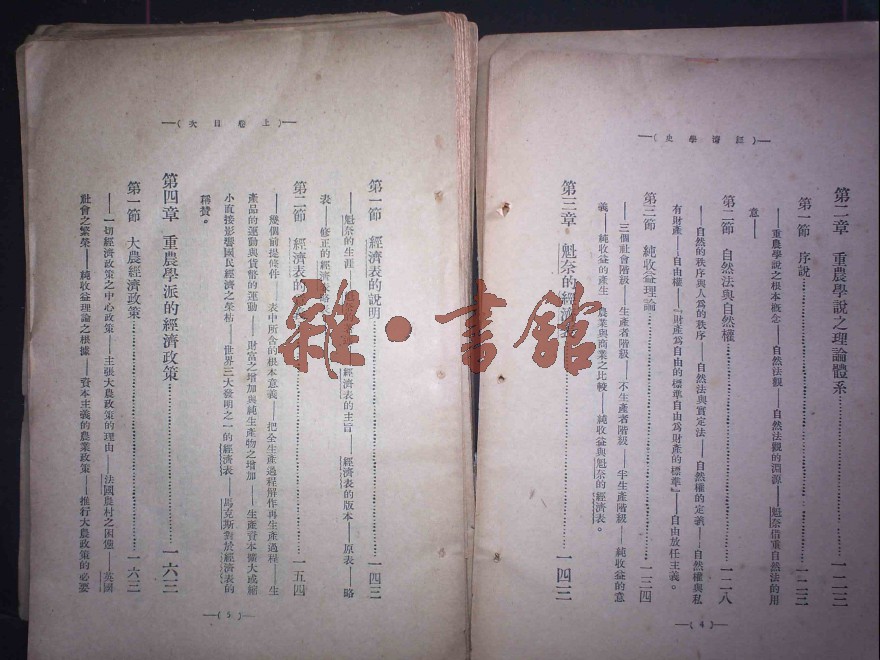 經濟學史
第二章 重農學說之理論體系 一二三
第一節 序說 一二三
——重農學說之根本概念——自然法觀——自然法觀的淵源——魁奈借重自然法的用
意——
第二節 自然法與自然權 一二八
——自然的秩序與人爲的秩序——自然法與實定法——自然權的定義——自然權與私
有財產——自由權——『財產爲自由的標準自由爲財產的標準』——自由放任主義。
第三節 純收益理論 一三四
——三個社會階級——生產者階級——不生產者階級——半生產階級——純收益的意
義——純收益的產生——農業與商業之比較——純收益與魁奈的經濟表。
第三章 魁奈的經濟表 一四三
(4)
上卷目次
第一節 經濟表的說明 一四三
——魁奈的生涯 經濟表的主旨——經濟表的版本——原表——略
表——修正的經濟表略
第二節 經濟表的 一五四
——幾個前提條件——表中所含的根本意義——把全生產過程解作再生產過程——生
產品的運動與貨幣的運動——財富之增加與純生產物之增加——生產資本擴大或縮
小直接影響國民經濟之榮枯——世界三大發明之一的經濟表——馬克斯對於經濟表的
稱贊。
第四章 重農學派的經濟政策 一六三
第一節 大農經濟政策 一六三
——一切經濟政策之中心政策——主張大農政策的理由——法國農村之困憊——英國
社會之繁榮——純收益理論之根據——資本主義的農業政策——推行大農政策的必要
(5)
雜·書館